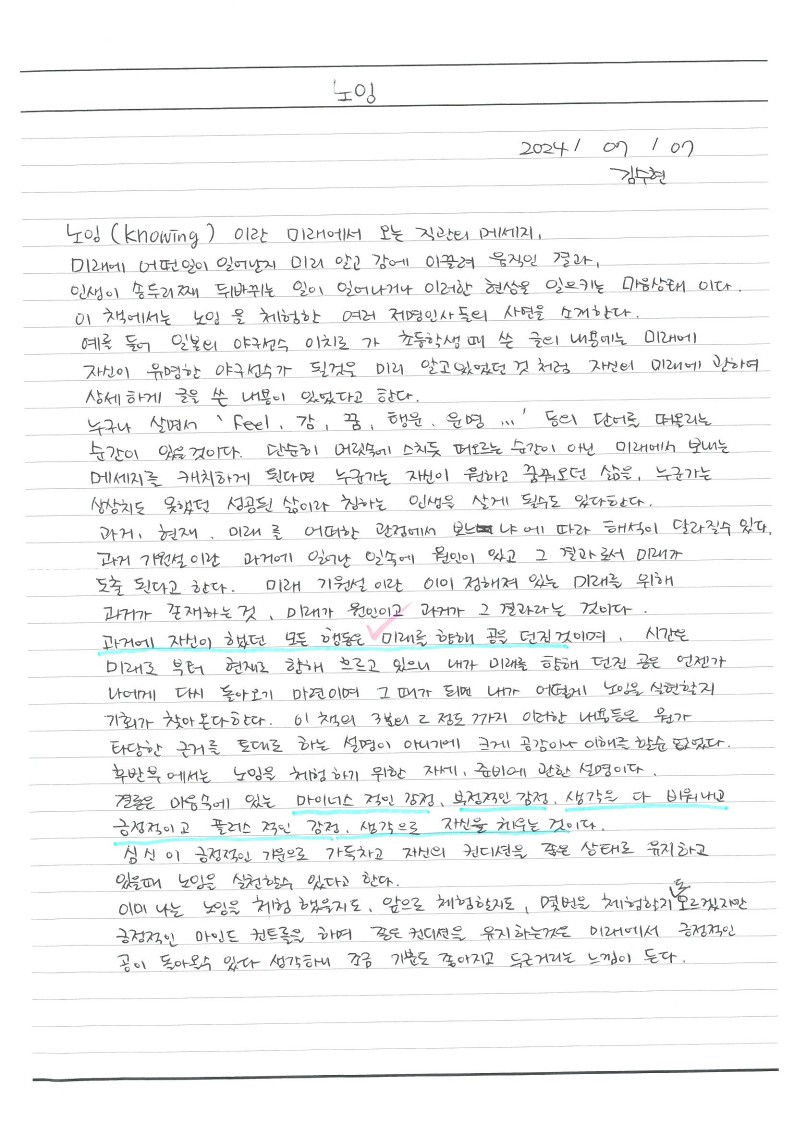 노잉
2024 / 07 / 07
김수현
노잉 (Knowing) 이란 미래에서 오는 직관의 메세지,
미래에 어떤일이 일어날지 미리 알고 감에 이끌려 움직인 결과,
인생이 송두리째 뒤바뀌는 일이 일어나거나 이러한 현상을 일으키는 마음상태 이다.
이 책에서는 노잉 을 체험한 여러 저명인사 들의 사연을 소개한다.
예를 들어 일본의 야구선수 이치로 가 초등학생 때 쓴 글의 내용에는 미래에
자신이 유명한 야구선수가 될것을 미리 알고있었던 것 처럼 자신의 미래에 관하여
상세하게 글을 쓴 내용이 있었다고 한다.
누구나 살면서 'Feel, 감, 꿈, 행운, 운명 ...' 등의 단어를 떠올리는
순간이 있을것이다. 단순히 머릿속에 스치듯 떠오르는 순간이 아닌 미래에서 보내는
메세지를 캐치하게 된다면 누군가는 자신이 원하고 꿈꿔오던 삶을, 누군가는
상상치도 못했던 성공된 삶이라 칭하는 인생을 살게 될수도 있다한다.
과거, 현재, 미래 를 어떠한 관점에서 보느냐 에 따라 해석이 달라질수 있다.
과거 기원설 이란 과거에 일어난 일속에 원인이 있고 그 결과로서 미래가
도출 된다고 한다. 미래 기원설 이란 이미 정해져 있는 미래를 위해
과거가 존재하는 것, 미래가 원인이고 과거가 그 결과라는 것이다.
과거에 자신이 했던 모든 행동은 미래를 향해 공을 던진 것이며, 시간은
미래로 부터 현재로 향해 흐르고 있으니 내가 미래를 향해 던진 공은 언젠가
나에게 다시 돌아오기 마련이며 그 때가 되면 내가 어떻게 노잉을 실현할지
기회가 찾아온다한다. 이 책의 3분의 2 정도 까지 이러한 내용들은 뭔가
타당한 근거를 토대로 하는 설명이 아니기에 크게 공감이나 이해를 할순 없었다.
후반부 에서는 노잉을 체험 하기 위한 자세, 준비에 관한 설명이다.
결론은 마음속에 있는 마이너스 적인 감정, 부정적인 감정, 생각을 다 비워내고
긍정적이고 플러스 적인 감정, 생각으로 자신을 채우는 것이다.
심신 이 긍정적인 기운으로 가득차고 자신의 컨디션을 좋은 상태로 유지하고
있을때 노잉을 실천할수 있다고 한다.
이미 나는 노잉을 체험 했을지도, 앞으로 체험할지도, 몇번을 체험할지도 모르겠지만
긍정적인 마인드 컨트롤을 하며 좋은 컨디션을 유지하는것은 미래에서 긍정적인
공이 돌아올수 있다 생각하니 조금 기분도 좋아지고 두근거리는 느낌이 든다.